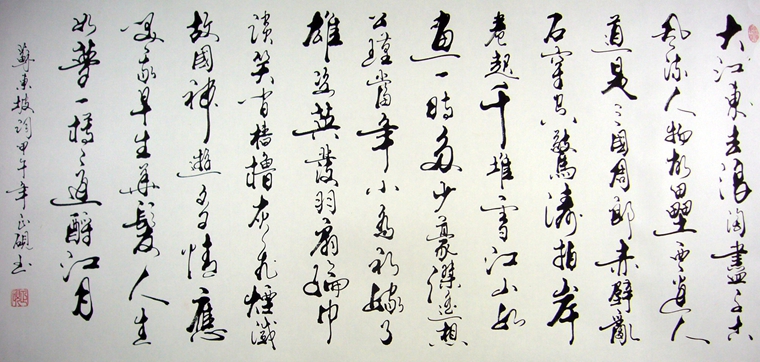 大江東去浪淘盡千古
風流人物故壘西邊人
道是三國周郎赤壁亂
石穿空驚濤拍岸
卷起千堆雪江山如
畫一時多少豪傑遙想
公瑾當年小喬初嫁了
雄姿英發羽扇綸巾
談笑間檣櫓灰飛煙滅
故國神遊多情應
笑我早生華髮人生
如夢一樽還酹江月
蘇東坡詞甲午年硯書